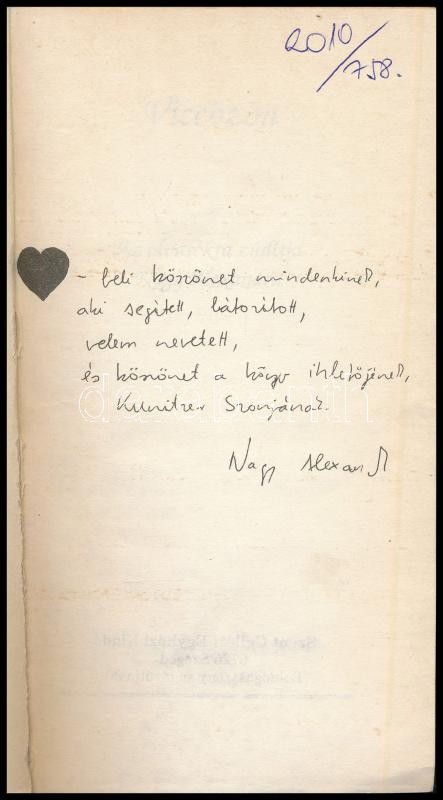 2010/758.
- beli köszönet mindenkinek,
aki segített, bátorított,
velem nevetett,
és köszönet a könyv ihletőjének,
Kunitzer Szonjának.
Nagy Alexandra
darabanth.com